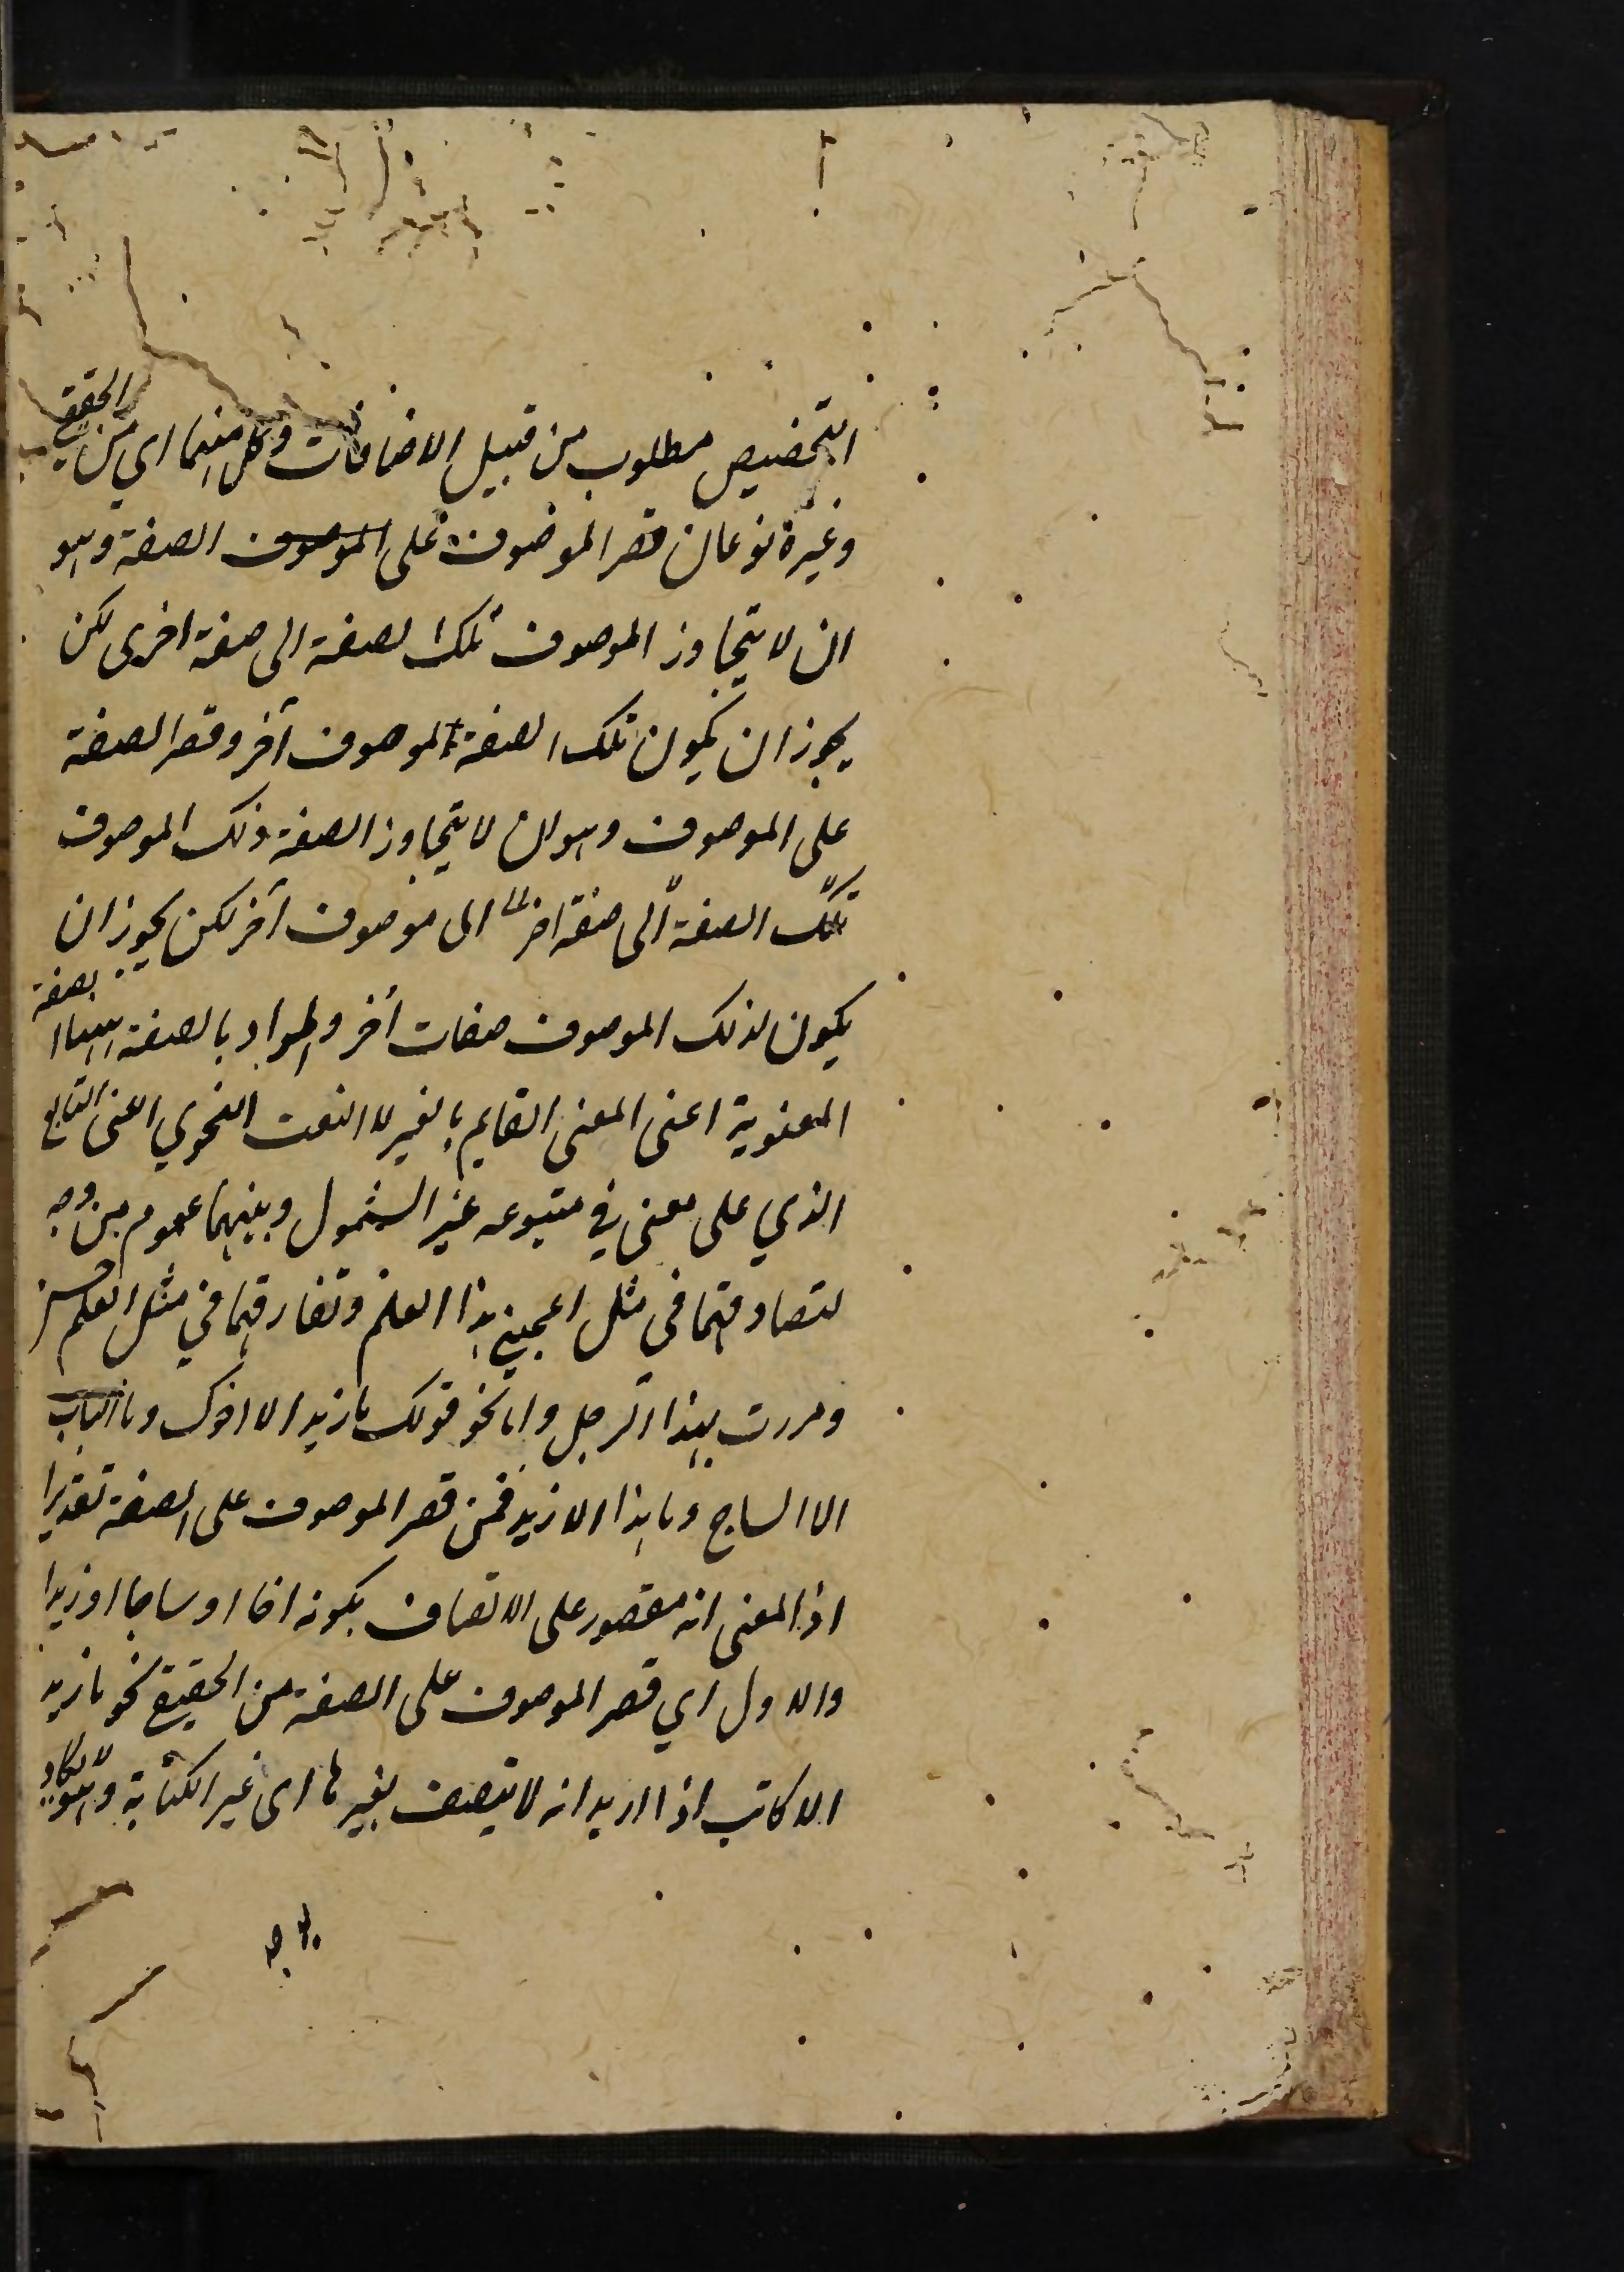 التخصيص مطلوب من قبيل الاضافات وكل منهما اي من الحقيقي
وغيره نوعان قصر الموصوف على الموصوف الصفة وهو
ان لا يتجاوز الموصوف تلك الصفة الى صفة اخرى لكن
يجوز ان يكون تلك الصفة لموصوف آخر وقصر الصفة
على الموصوف وهو ان لا يتجاوز الصفة ذلك الموصوف
تلك الصفة الى صفة اخرى الى موصوف آخر لكن يجوز ان
يكون لذلك الموصوف صفات أخر والمراد بالصفة ههنا الصفة
المعنوية اعنى المعنى القايم بالغير لا النعت النحوي اعنى التابع
الذي على معنى في متبوعه غير الشمول وبينهما عموم من وجه
لتصادقهما في مثل اعجبني هذا العلم وتفارقهما في مثل العلم حسن
ومررت بهذا الرجل واما نحو قولك ما زيد الا اخوك وما الباب
الا الساج وما هذا الا زيد فمن قصر الموصوف على الصفة تقديرا
اذ المعنى انه مقصور على الاتصاف بكونه اخا او ساجا او زيدا
والاول اي قصر الموصوف على الصفة من الحقيقي نحو ما زيد
الا كاتب اذا اريد انه لا يتصف بغيرها اى غير الكتابة وهو لا يكاد
يوجد